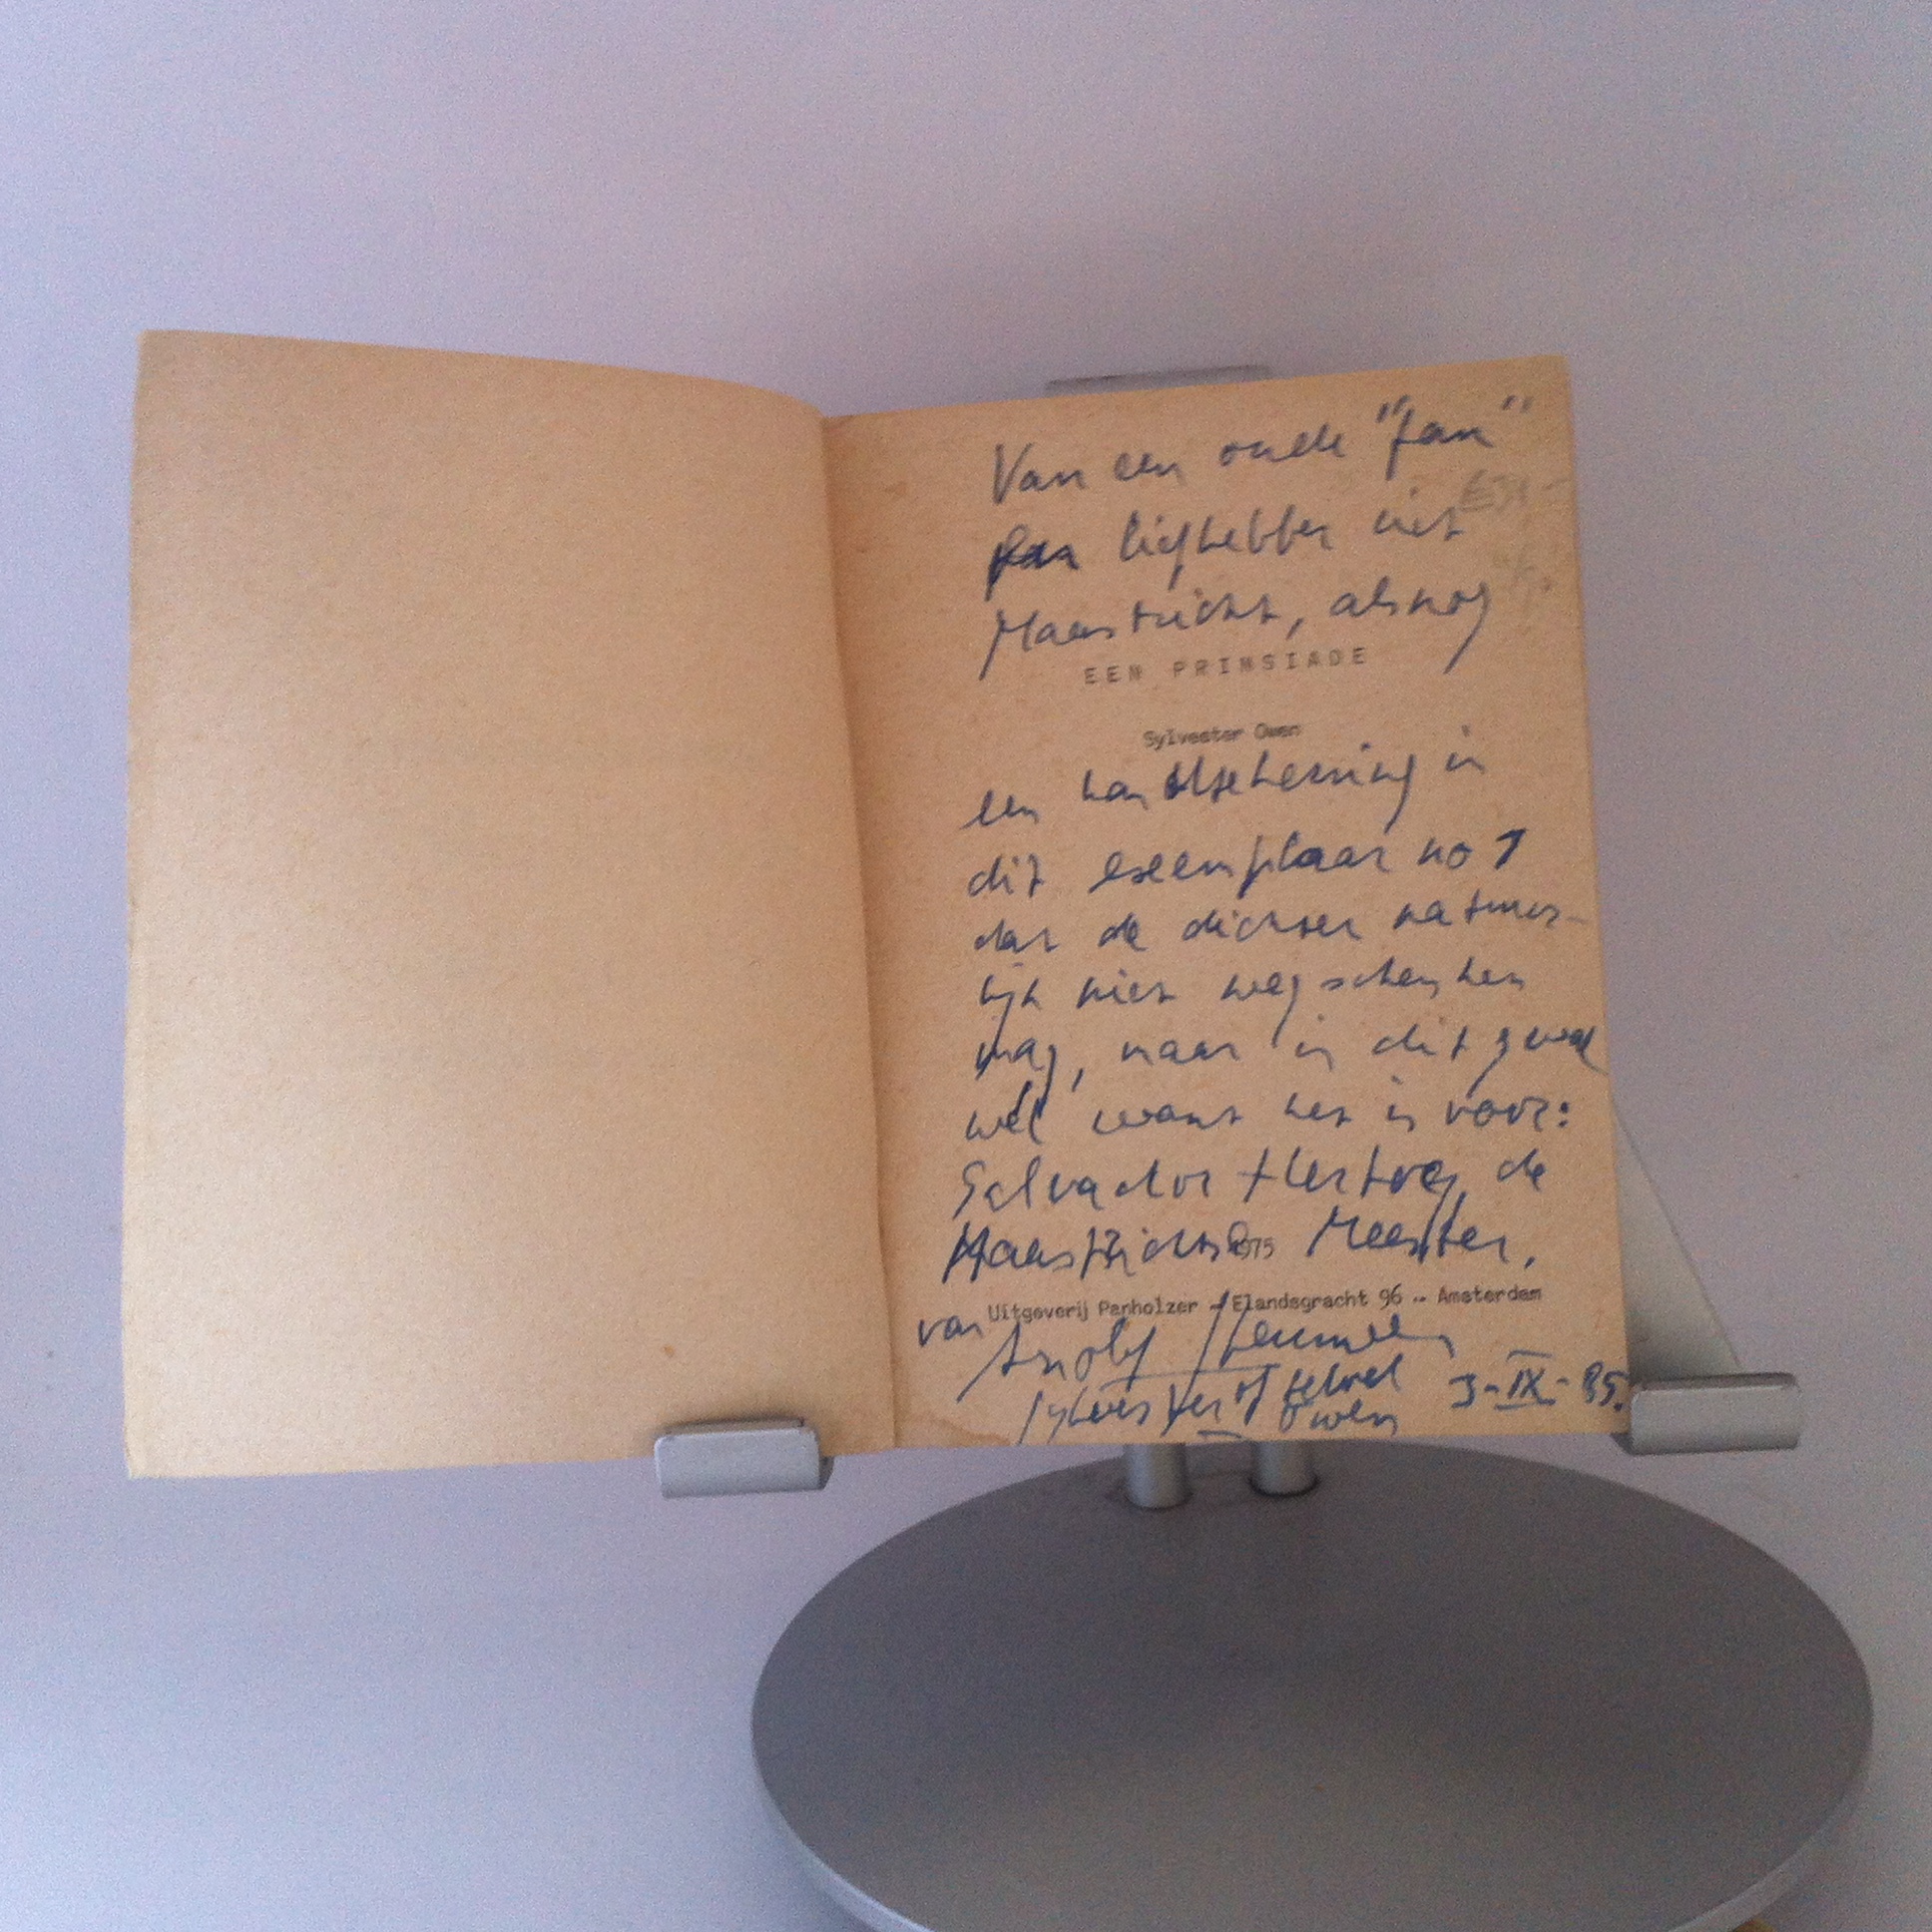 Van een oude "fan"
fan liefhebber uit
Maastricht, alsnog
EEN PRIMSIADE
Sylvester Owen
een handtekening in
dit exemplaar no 1
dat de dichter natuur-
lijk niet wegschenken
mag, maar in dit geval
wel want het is voor:
Salvador Hertog, de
Maastrichtse Meester.
1975
Uitgeverij Panholzer - Elandsgracht 96 -- Amsterdam
van
Sylvester Owen
3-IX-85.